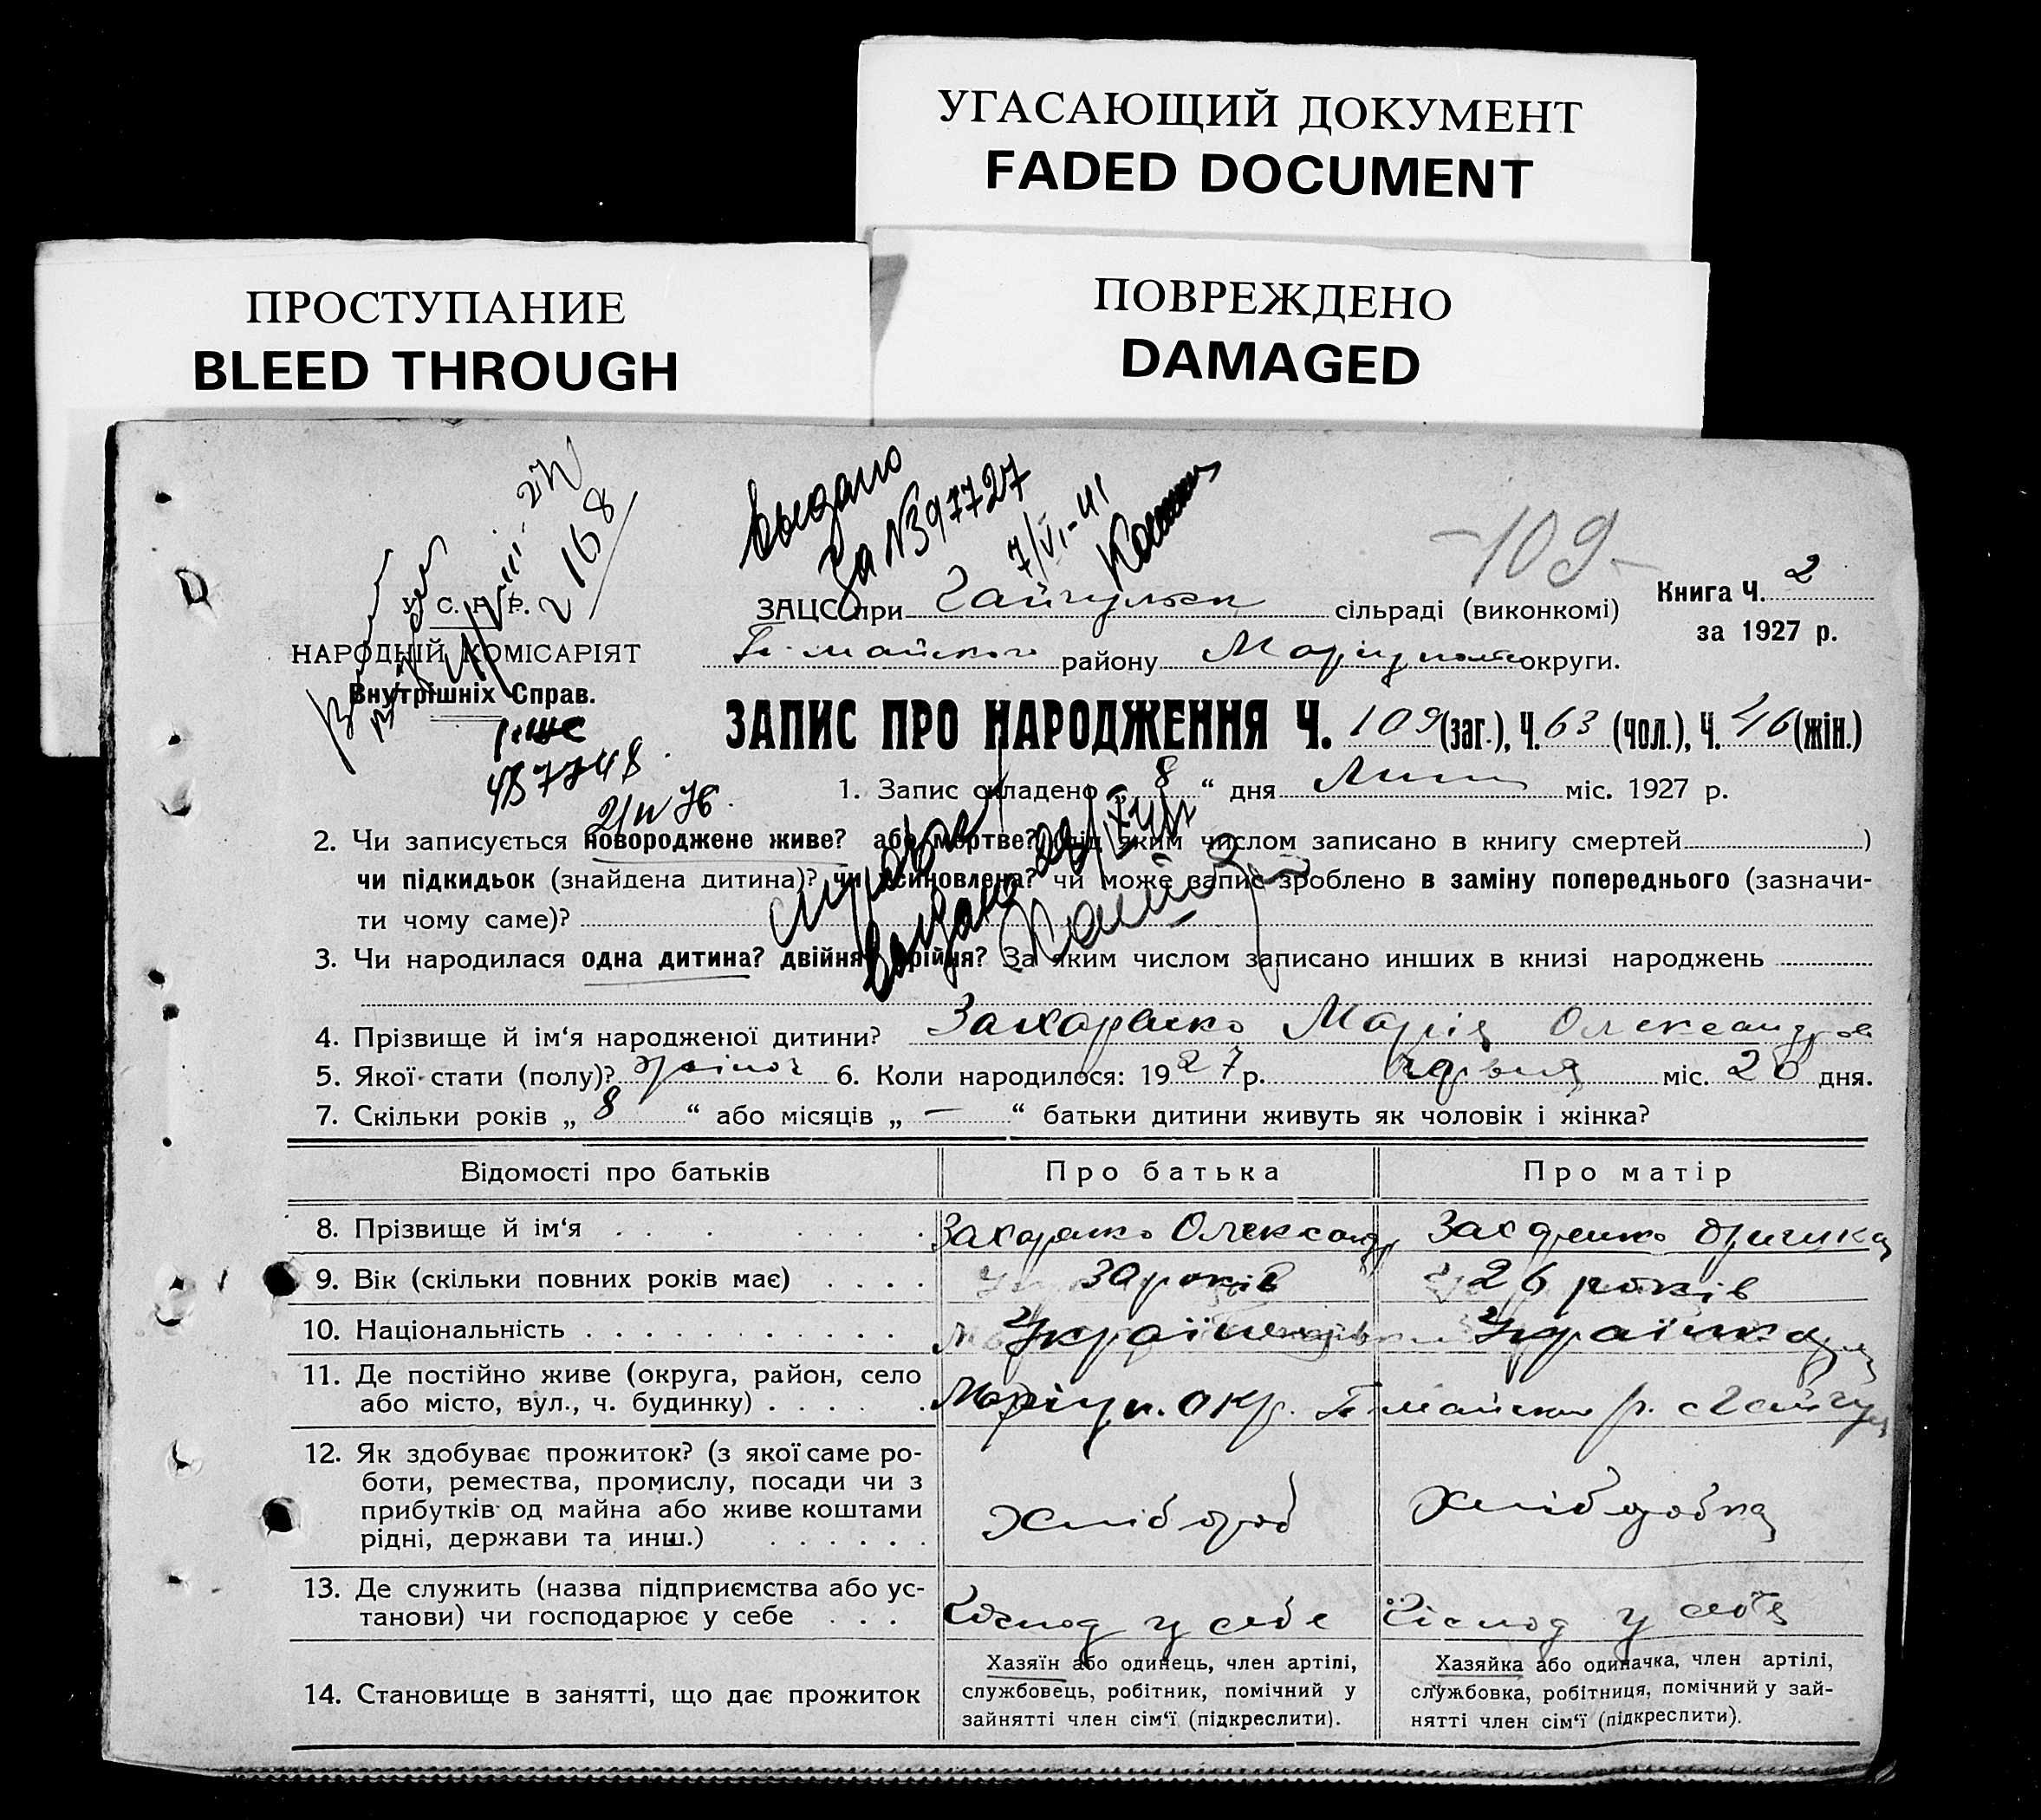 УГАСАЮЩИЙ ДОКУМЕНТ
FADED DOCUMENT
ПРОСТУПАНИЕ
BLEED THROUGH
ПОВРЕЖДЕНО
DAMAGED
выдано
За № 397727
7/VI-41
168
-109-
У. С. Р. Р.
НАРОДНІЙ КОМІСАРІЯТ
Внутрішніх Справ.
ЗАЦС при Гайчульск сільраді (виконкомі)
П-майского району Маріупольс округи.
Книга Ч. 2
за 1927 р.
ЗАПИС ПРО НАРОДЖЕННЯ Ч. 109 (заг.), Ч. 63 (чол.), Ч. 46 (жін.)
1. Запис складено „ 8 “ дня Липня міс. 1927 р.
2. Чи записується новороджене живе? або мертве? (під яким числом записано в книгу смертей )
чи підкидьок (знайдена дитина)? чи всиновлена? чи може запис зроблено в заміну попереднього (зазначи-
ти чому саме)?
справка
выдана
3. Чи народилася одна дитина? двійня? трійня? За яким числом записано инших в книзі народжень
4. Прізвище й ім‘я народженої дитини? Захаренко Марія Олександров
5. Якої стати (полу)? жіноч 6. Коли народилося: 1927 р. червня міс. 20 дня.
7. Скільки років „ 8 “ або місяців „ — “ батьки дитини живуть як чоловік і жінка?
Відомості про батьків Про батька Про матір
8. Прізвище й ім‘я Захаренко Олександр Захаренко
9. Вік (скільки повних років має) 30 років 26 років
10. Національність Українець Українка
11. Де постійно живе (округа, район, село
або місто, вул., ч. будинку) Маріуп. окр. П-майськ р. с Гайчул
12. Як здобуває прожиток? (з якої саме ро-
боти, ремества, промислу, посади чи з
прибутків од майна або живе коштами
рідні, держави та инш.) Хлібороб Хліборобка
13. Де служить (назва підприємства або ус-
танови) чи господарює у себе Господ у себе Господ у себе
14. Становище в занятті, що дає прожиток
Хазяїн або одинець, член артілі,
службовець, робітник, помічний у
зайнятті член сім‘ї (підкреслити).
Хазяйка або одиначка, член артілі,
службовка, робітниця, помічний у зай-
нятті член сім‘ї (підкреслити).